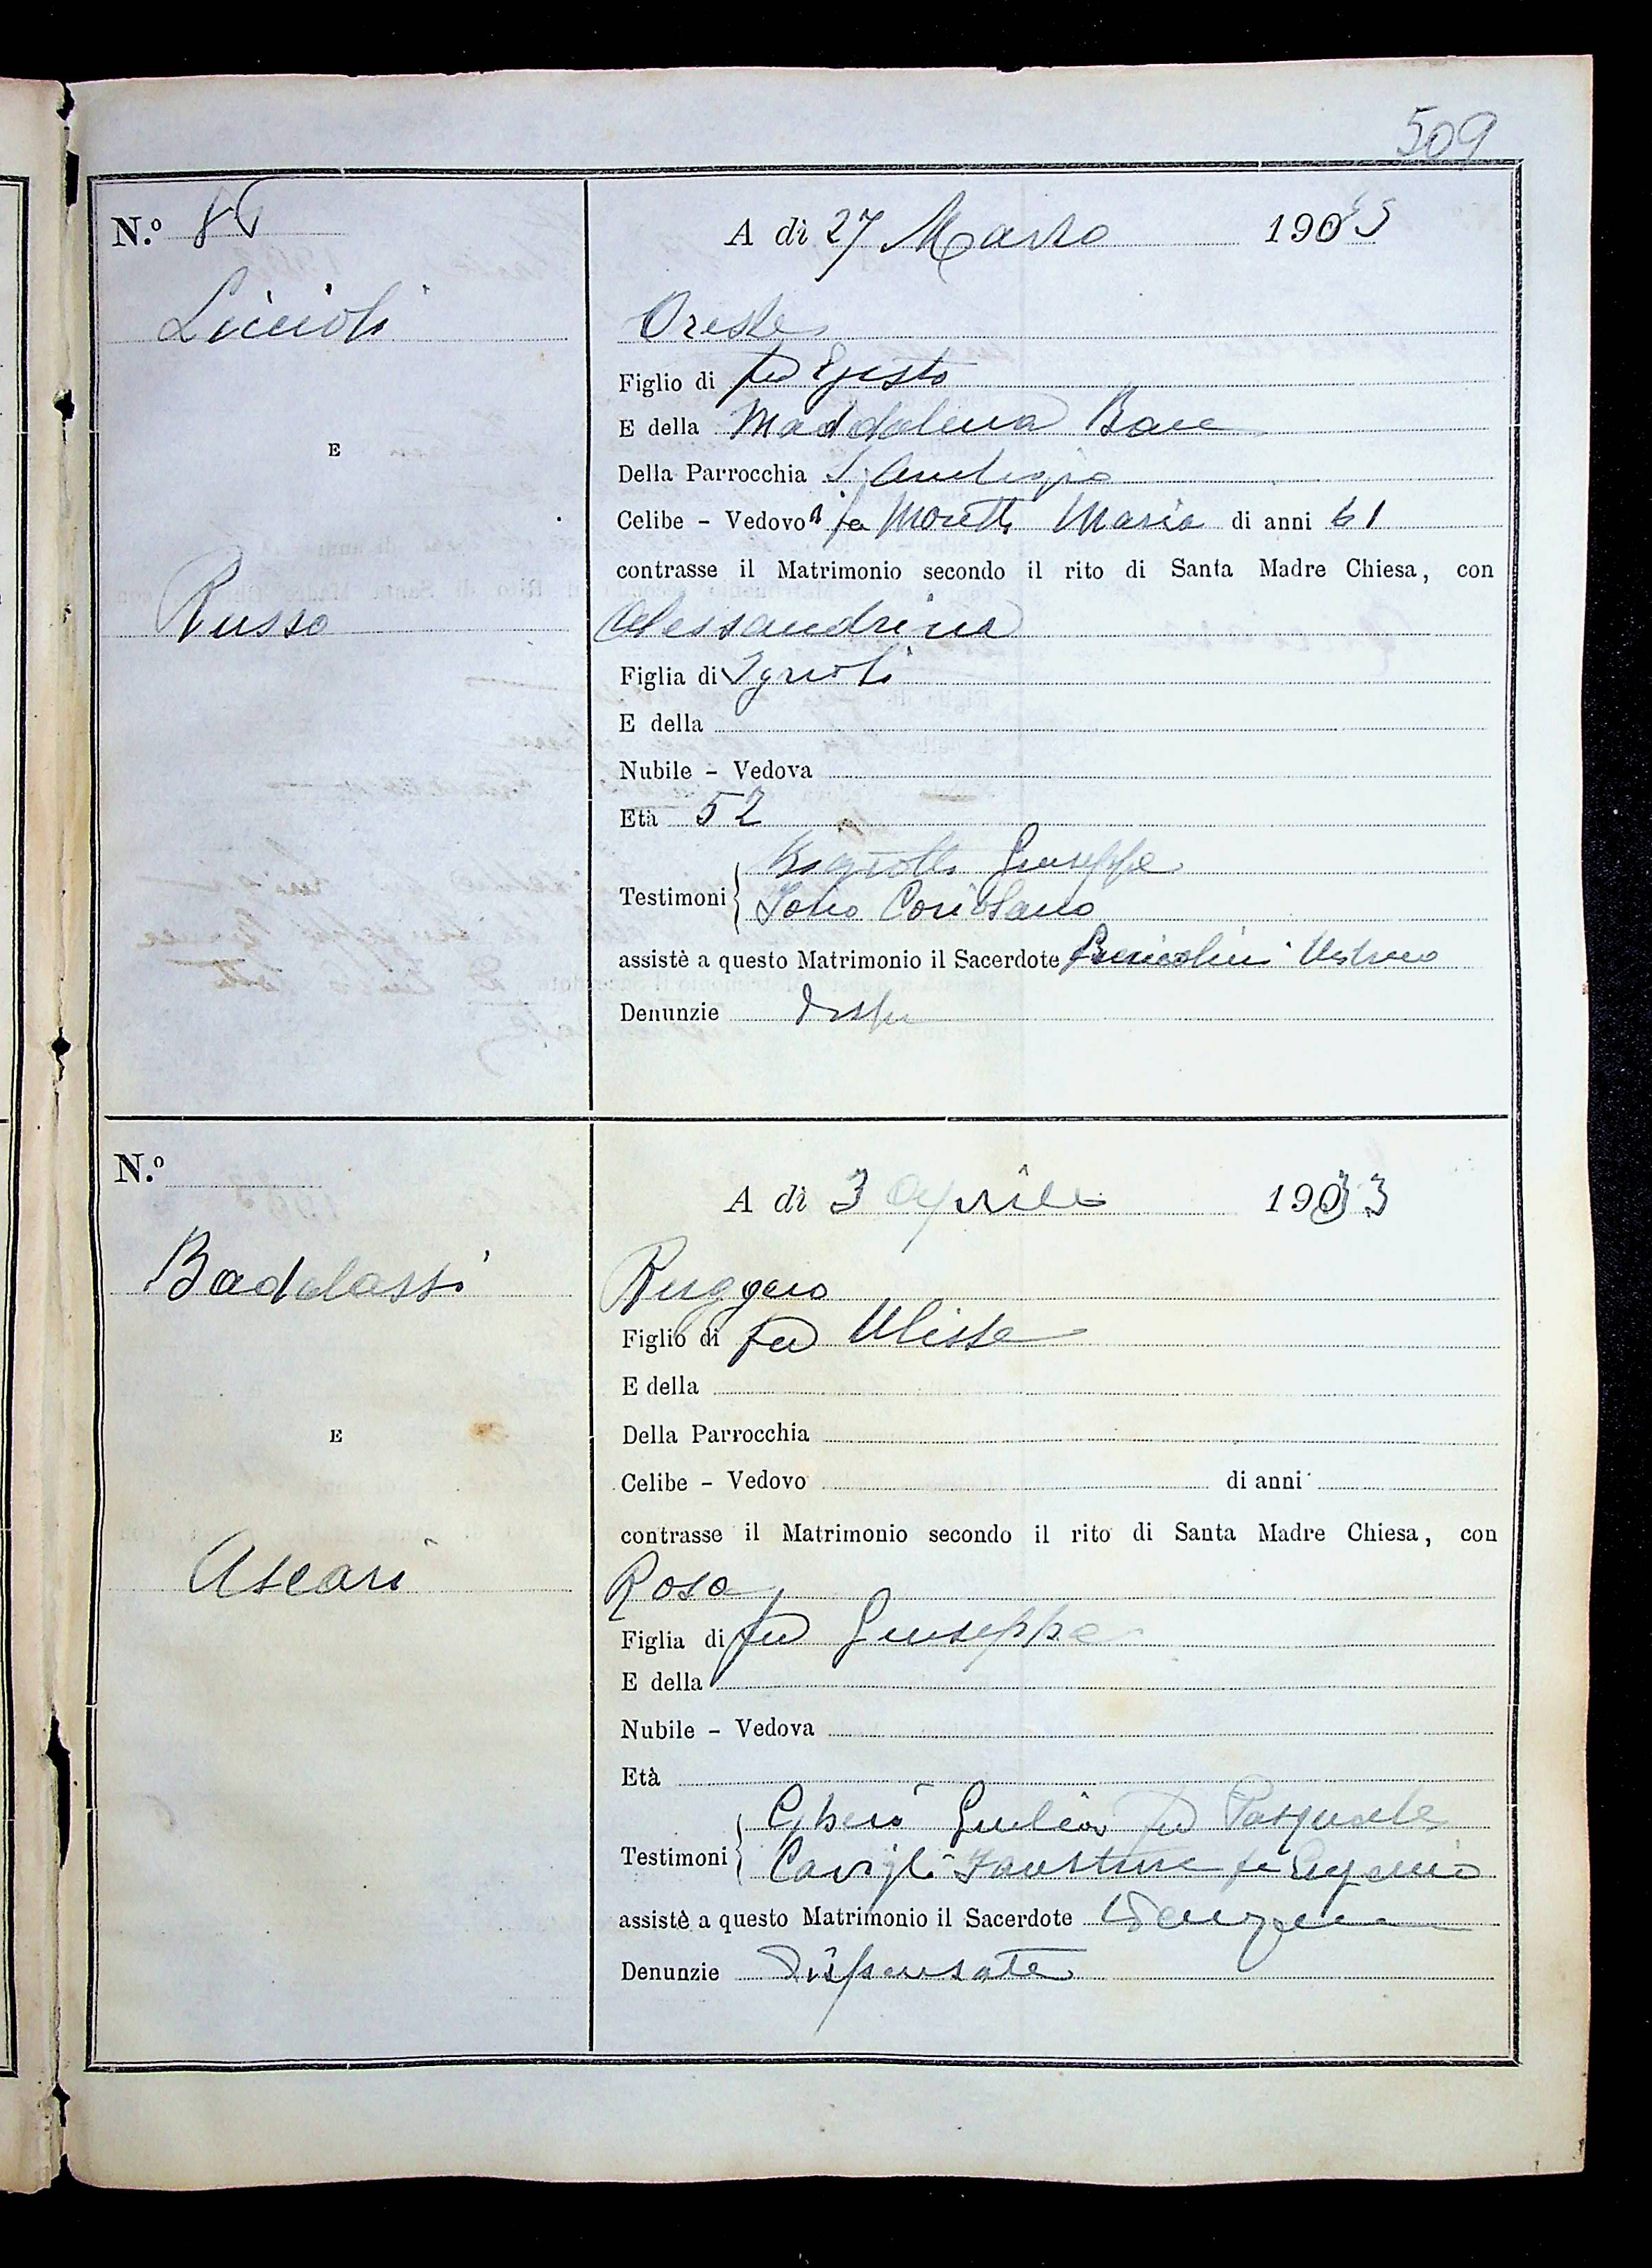 509
N.º 8
A dì 27 Marzo 1933
Liccioli
Oreste
Figlio di fu Egisto
E della Maddalena
E
Della Parrocchia S.
Celibe - Vedovo di fu Moretti Maria di anni 61
contrasse il Matrimonio secondo il rito di Santa Madre Chiesa, con
Russo
Alessandrina
Figlia di Ignoti
E della
Nubile - Vedova
Età 52
Giuseppe
Testimoni
Coriolano
assistè a questo Matrimonio il Sacerdote
Denunzie Dispe
N.º
A dì 3 Aprile 1933
Badalassi
Ruggero
Figlio di fu Ulisse
E della
E
Della Parrocchia
Celibe - Vedovo di anni
contrasse il Matrimonio secondo il rito di Santa Madre Chiesa, con
Ascari
Rosa
Figlia di fu Giuseppe
E della
Nubile - Vedova
Età
Giulio fu Pasquale
Testimoni
Cavigli Faustino fu Eugenio
assistè a questo Matrimonio il Sacerdote
Denunzie Dispensate